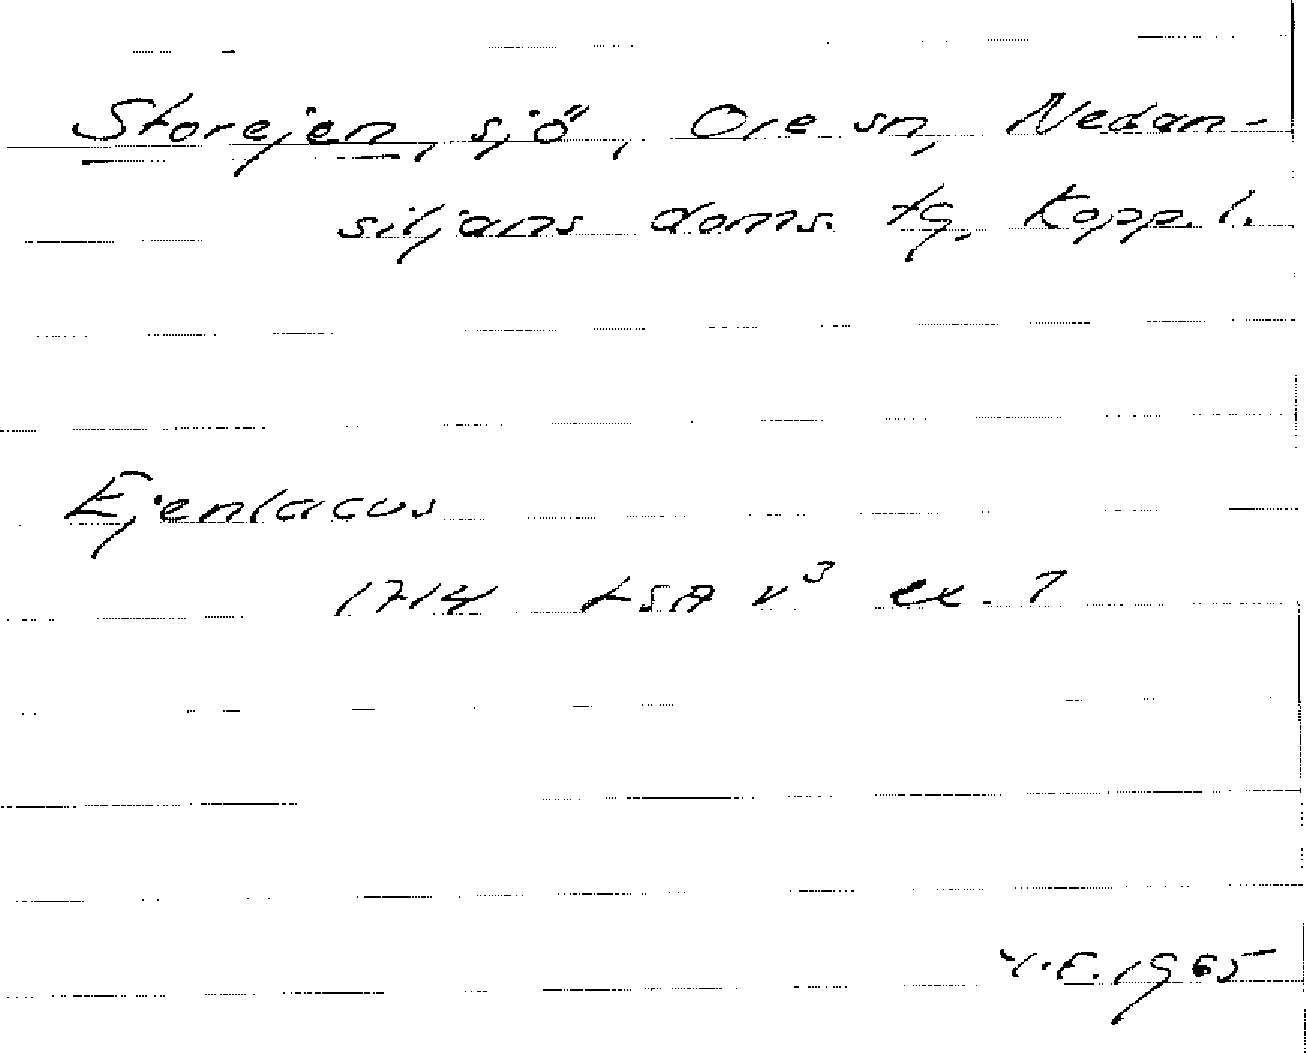 Storejen, sjö, Ore sn, Nedan-
siljans doms. tg, Kopp. l.
Ejenlacus
1714 LSA V³ ex. 7
V.E. 1965